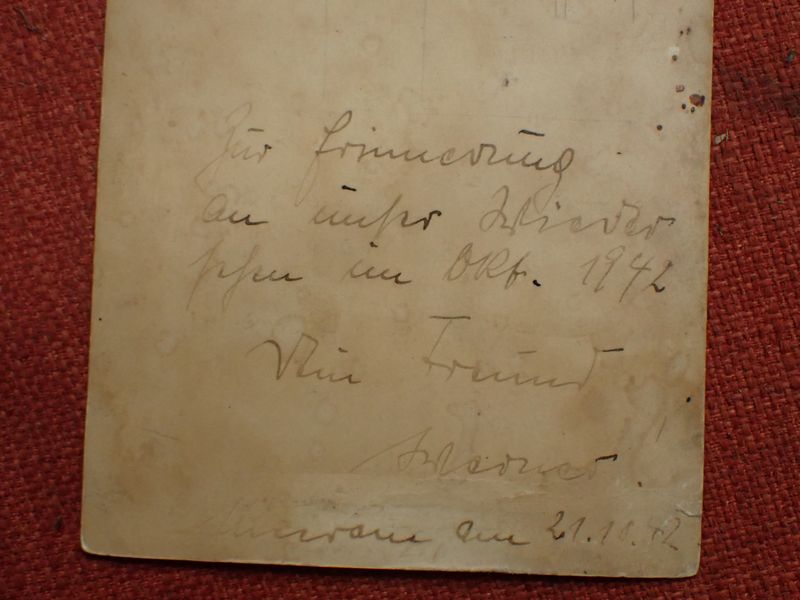 Zur Erinnerung
an unser Wieder
sehen im Okt. 1942
Dein Freund
Werner!
am 21.10.42